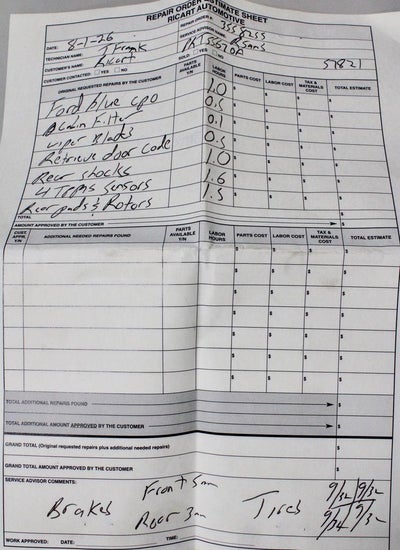 REPAIR ORDER ESTIMATE SHEET
RICART AUTOMOTIVE
REPAIR ORDER #: 3558255
DATE: 8-1-26 SERVICE ADVISOR NAME:
TECHNICIAN NAME: T Frank
CUSTOMER'S NAME: Ricart SOLD: YES NO 57821
CUSTOMER CONTACTED: YES NO
ORIGINAL REQUESTED REPAIRS BY THE CUSTOMER PARTS AVAILABLE Y/N LABOR HOURS PARTS COST LABOR COST TAX & MATERIALS COST TOTAL ESTIMATE
Ford blue CPO 1.0 $ $ $ $
Cabin Filter 0.5 $ $ $ $
wiper Blades 0.1 $ $ $ $
Retrieve door code 0.5 $ $ $ $
Rear shocks 1.0 $ $ $ $
4 Tpms sensors 1.6 $ $ $ $
Rear pads & Rotors 1.5 $ $ $ $
TOTAL
AMOUNT APPROVED BY THE CUSTOMER $
CUST. APPR. Y/N ADDITIONAL NEEDED REPAIRS FOUND PARTS AVAILABLE Y/N LABOR HOURS PARTS COST LABOR COST TAX & MATERIALS COST TOTAL ESTIMATE
$ $ $ $
$ $ $ $
$ $ $ $
$ $ $ $
$ $ $ $
$ $ $ $
$ $ $ $
$ $ $ $
TOTAL ADDITIONAL REPAIRS FOUND $
TOTAL ADDITIONAL AMOUNT APPROVED BY THE CUSTOMER $
GRAND TOTAL (Original requested repairs plus additional needed repairs) $
GRAND TOTAL AMOUNT APPROVED BY THE CUSTOMER $
SERVICE ADVISOR COMMENTS:
Front 5mm 9/32 9/32
Brakes Tires
Rear 3mm 9/32 9/32
WORK APPROVED: DATE: TIME: